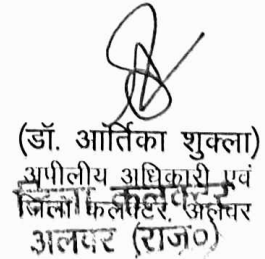 (डॉ. आर्तिका शुक्ला)
अपीलीय अधिकारी एवं
जिला कलक्टर
जिला कलेक्टर, अलवर
अलवर (राज०)